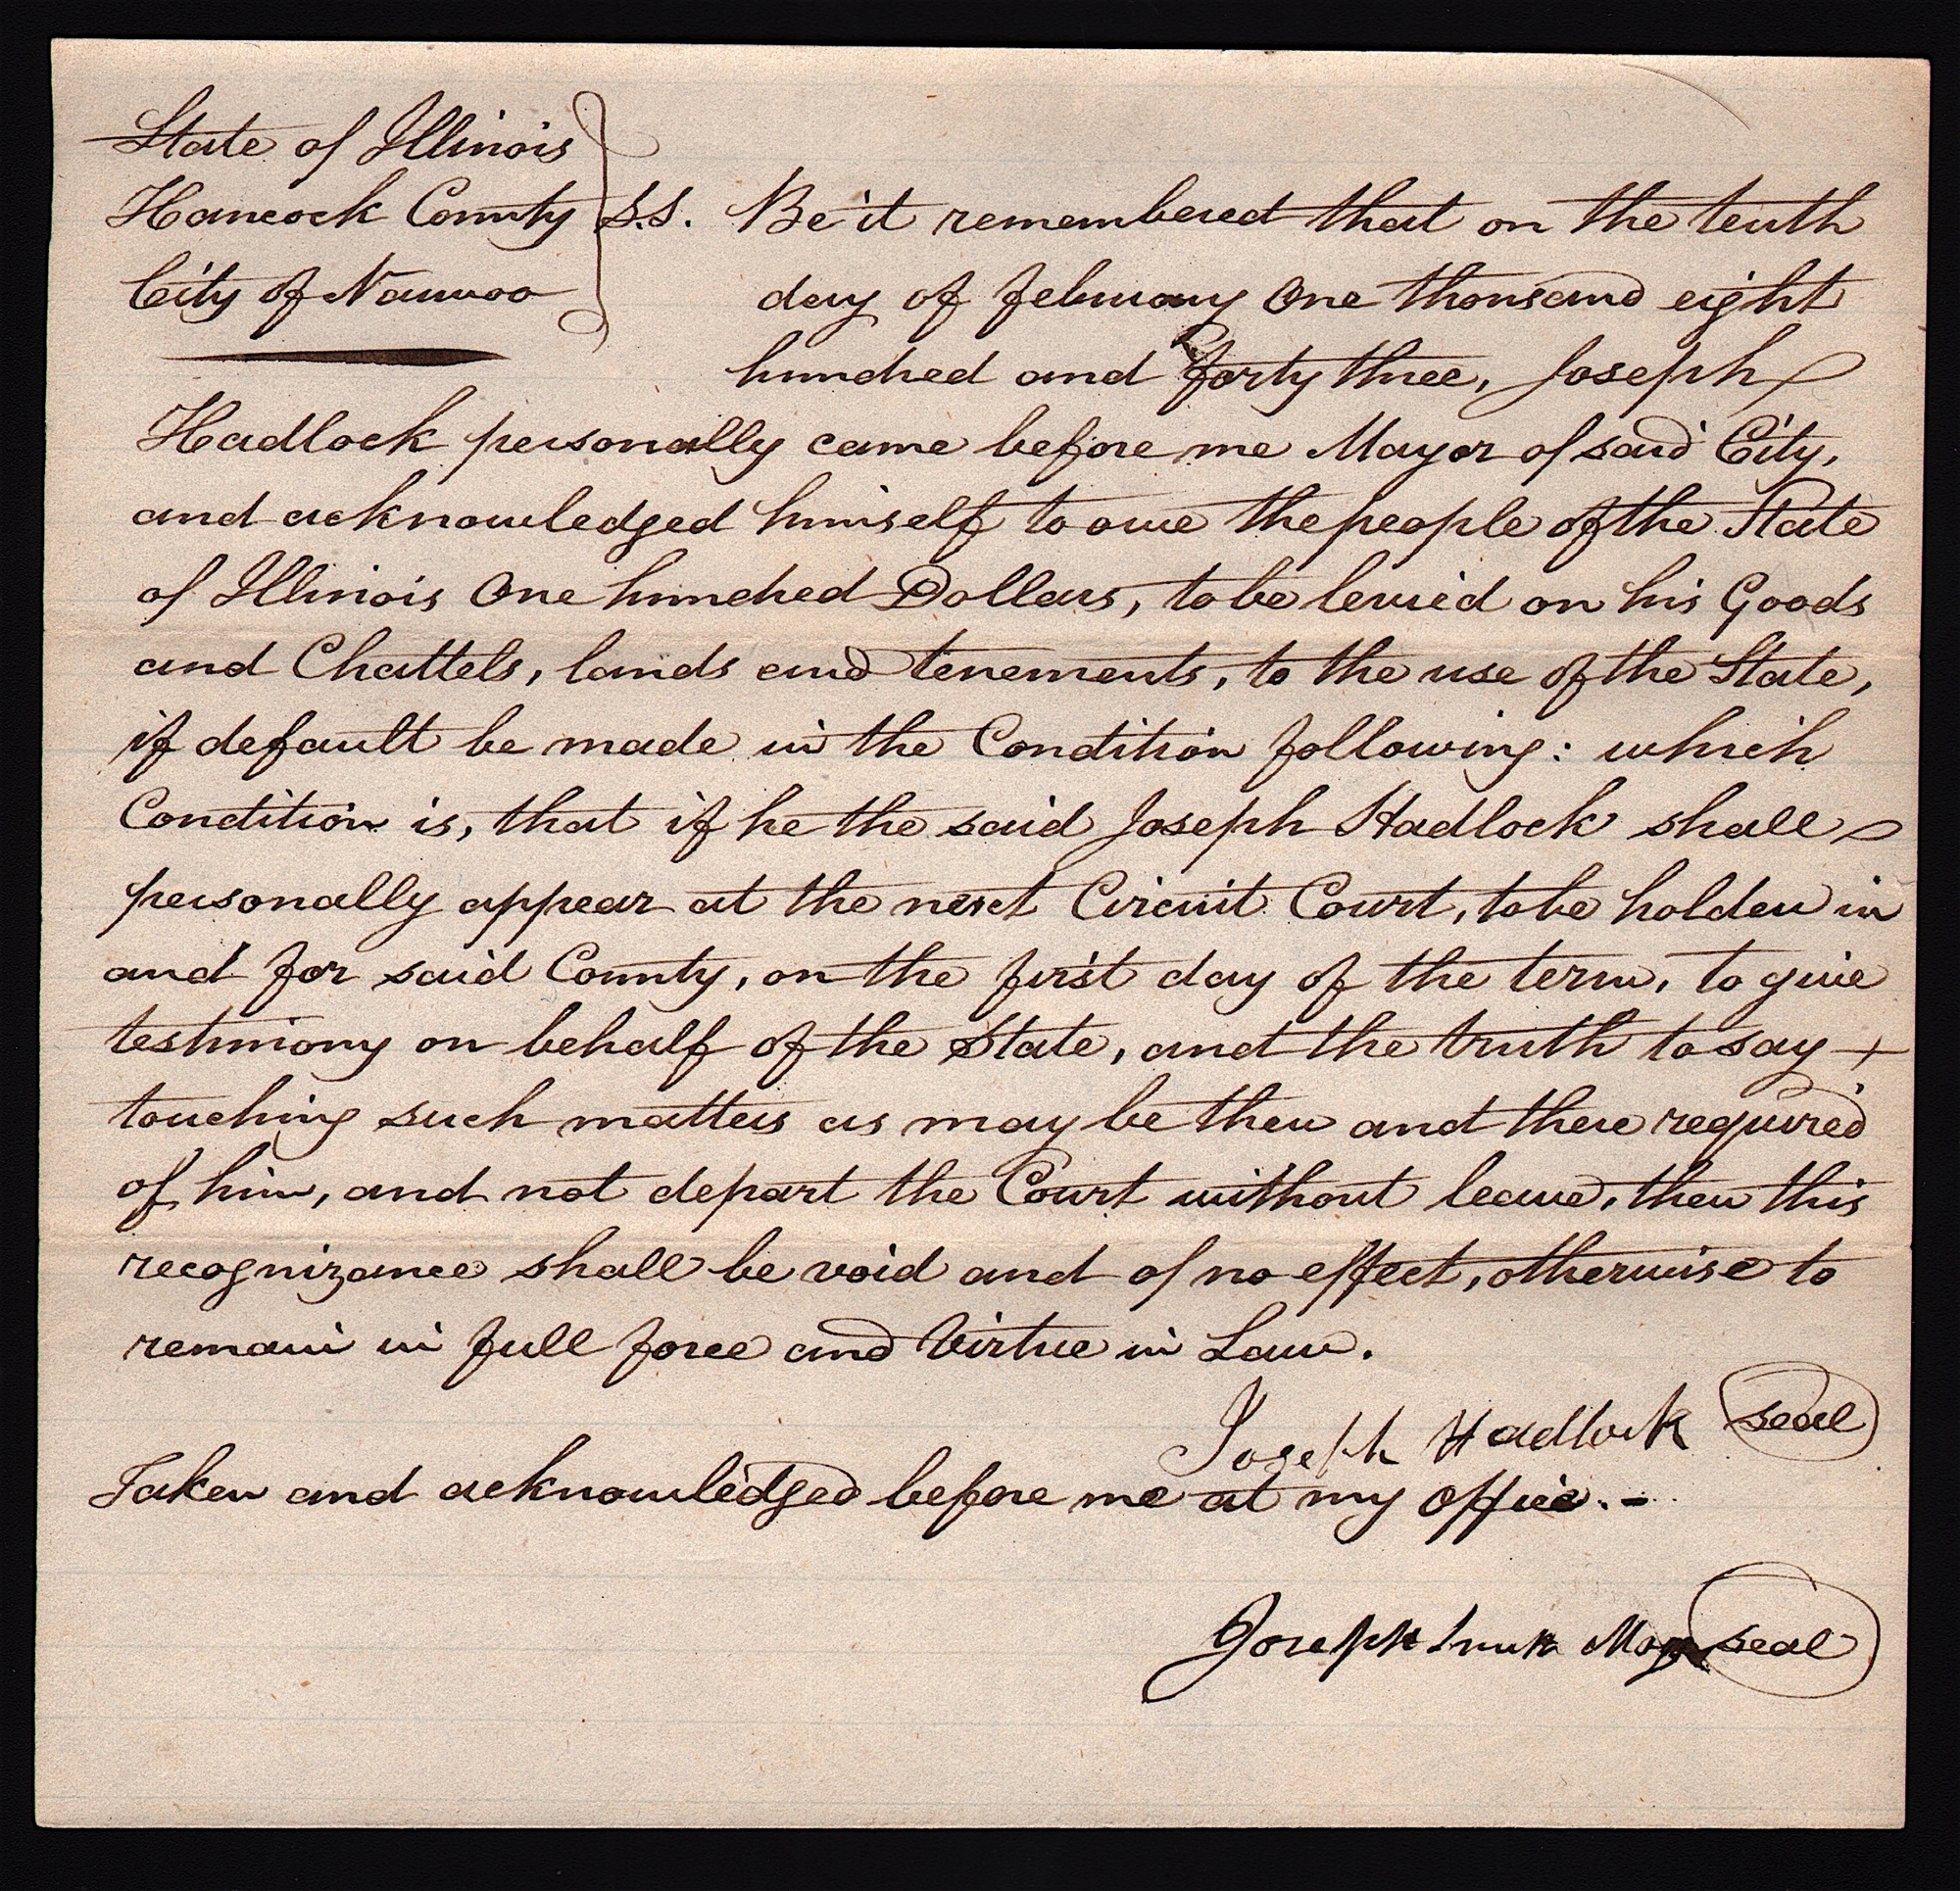 State of Illinois
Hancock County S.S. Be it remembered that on the tenth
City of Nauvoo day of February One thousand eight
hundred and forty three, Joseph
Hadlock personally came before me Mayor of said City,
and acknowledged himself to owe the people of the State
of Illinois One hundred Dollars, to be levied on his Goods
and Chattels, lands and tenements, to the use of the State,
if default be made in the Condition following: which
Condition is, that if he the said Joseph Hadlock shall
personally appear at the next Circuit Court, to be holden in
and for said County, on the first day of the term, to give
testimony on behalf of the State, and the truth to say +
touching such matters as may be then and there required
of him, and not depart the Court without leave, then this
recognizance shall be void and of no effect, otherwise to
remain in full force and Virtue in Law.
Joseph Hadlock seal
Taken and acknowledged before me at my Office.-
Joseph Smith Mayor seal